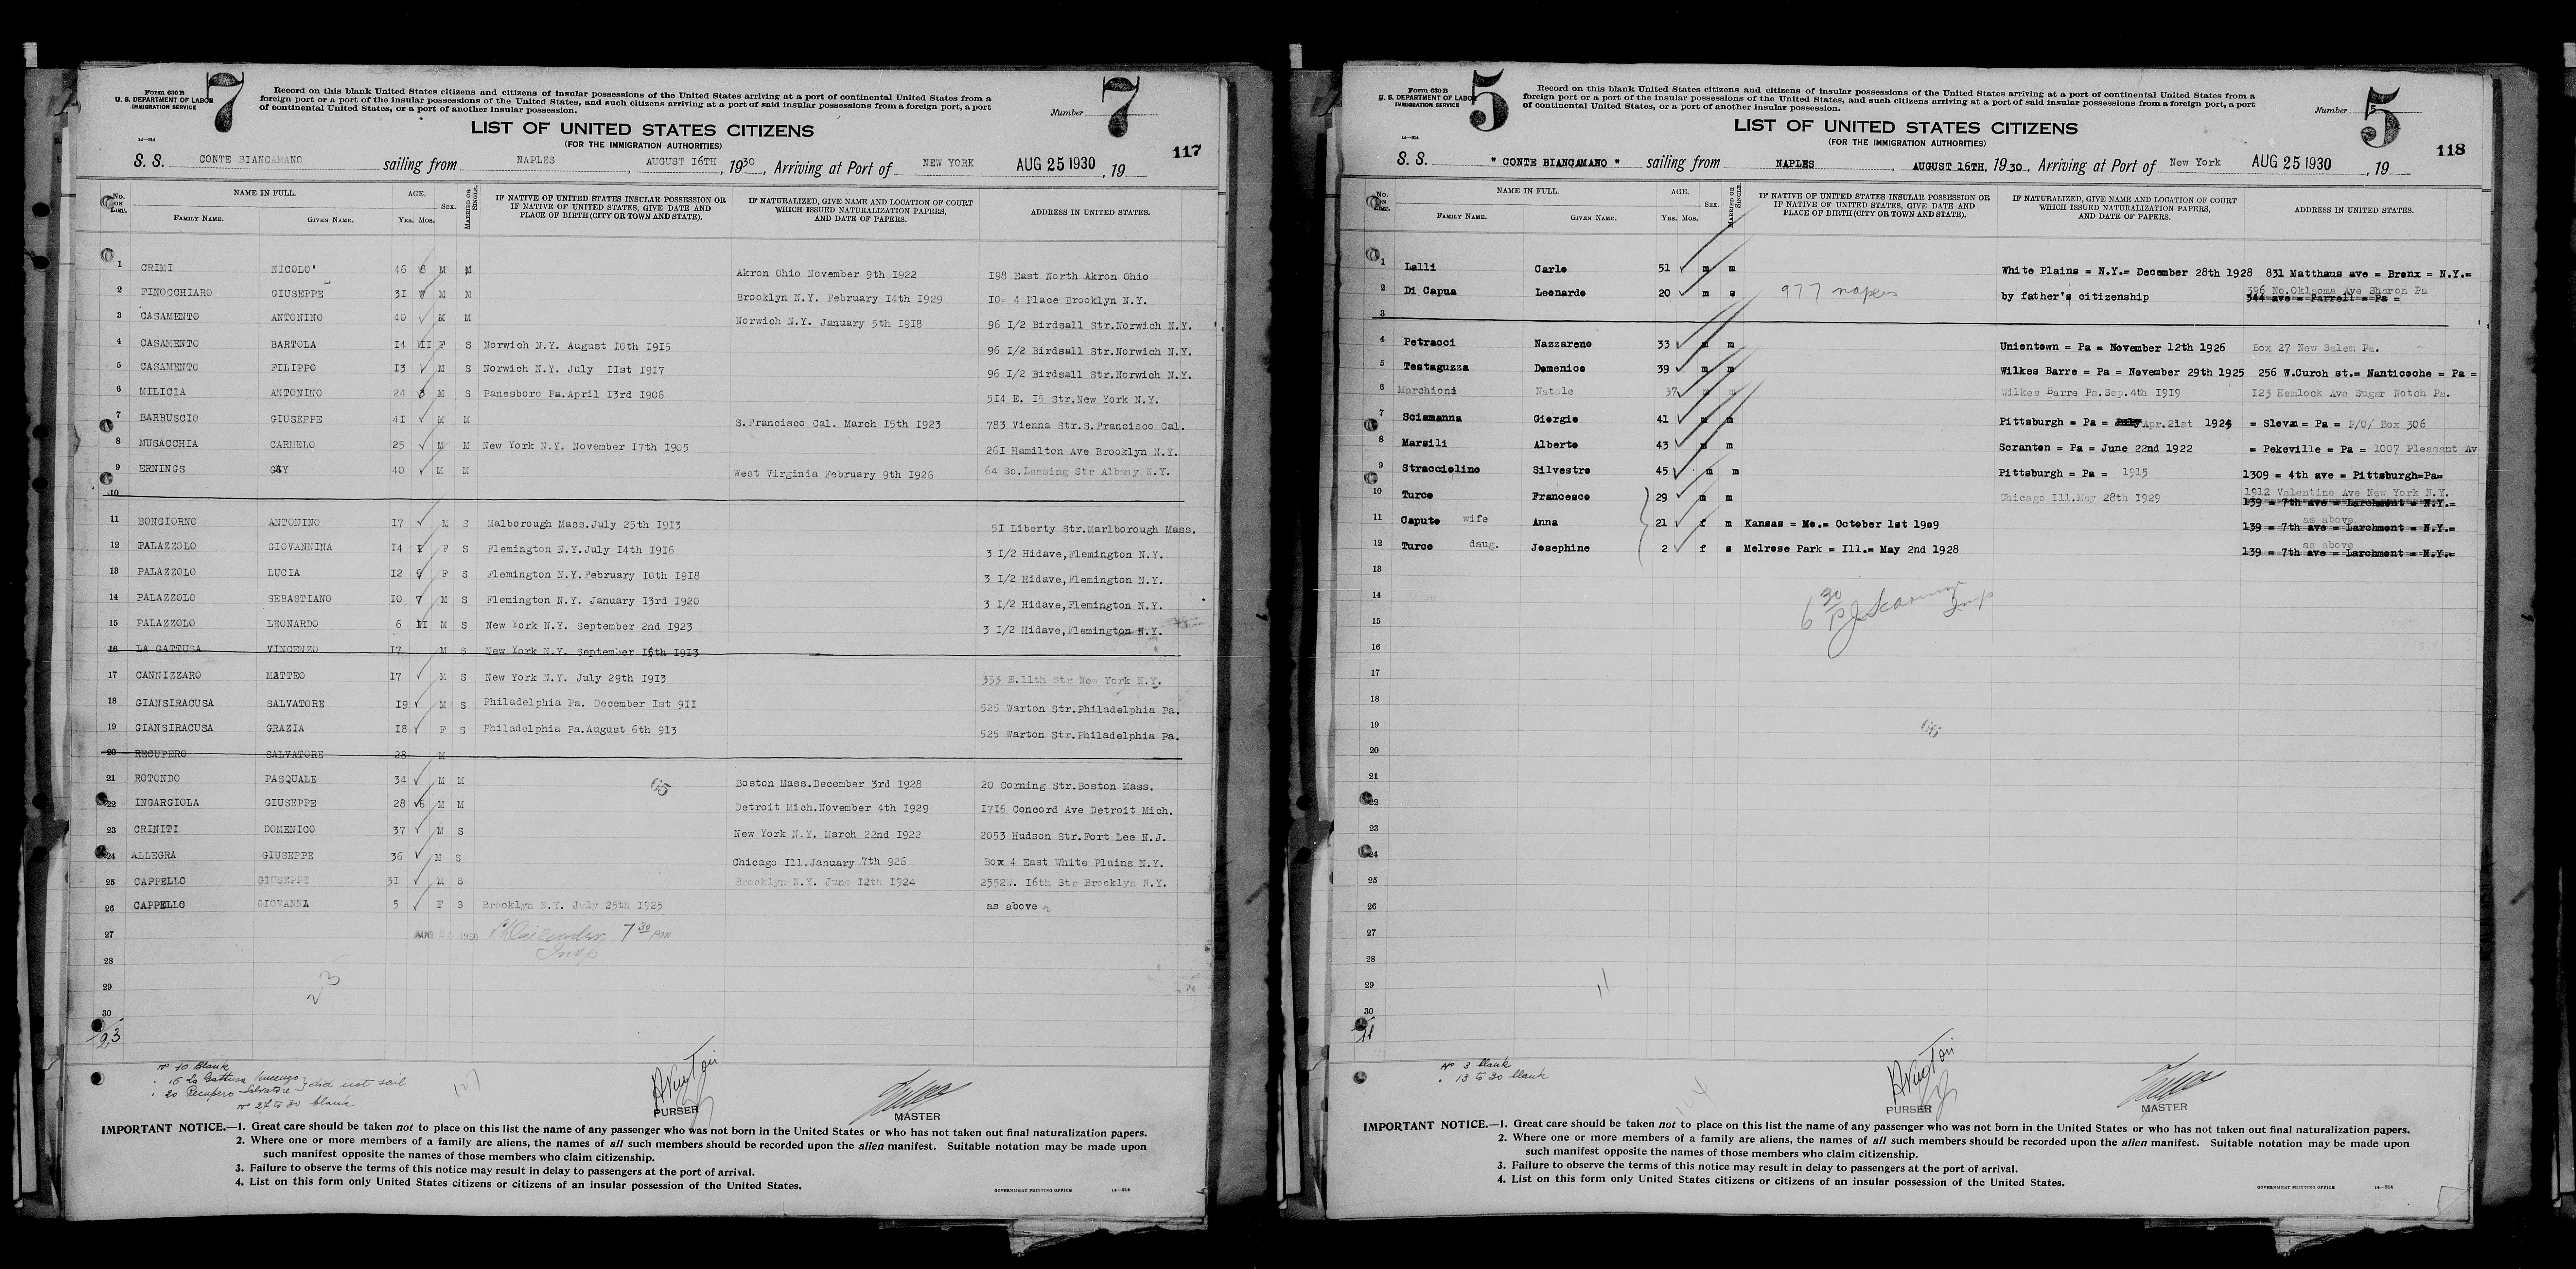 Form 630 B
U. S. DEPARTMENT OF LABOR
IMMIGRATION SERVICE
7
Record on this blank United States citizens and citizens of insular possessions of the United States arriving at a port of continental United States from a
foreign port or a port of the insular possessions of the United States, and such citizens arriving at a port of said insular possessions from a foreign port, a port
of continental United States, or a port of another insular possession.
Number 7
14—314
LIST OF UNITED STATES CITIZENS
(FOR THE IMMIGRATION AUTHORITIES)
117
S. S. CONTE BIANCAMANO sailing from NAPLES, AUGUST I6TH, 1930, Arriving at Port of NEW YORK AUG 25 1930, 19
No. ON LIST. NAME IN FULL. AGE. SEX. MARRIED OR SINGLE. IF NATIVE OF UNITED STATES INSULAR POSSESSION OR IF NATIVE OF UNITED STATES, GIVE DATE AND PLACE OF BIRTH (CITY OR TOWN AND STATE). IF NATURALIZED, GIVE NAME AND LOCATION OF COURT WHICH ISSUED NATURALIZATION PAPERS, AND DATE OF PAPERS. ADDRESS IN UNITED STATES.
FAMILY NAME. GIVEN NAME. YRS. MOS.
1 CRIMI NICOLO' 46 8 M M Akron Ohio November 9th I922 I98 East North Akron Ohio
2 FINOCCHIARO GIUSEPPE 3I M M Brooklyn N.Y. February I4th I929 I0= 4 Place Brooklyn N.Y.
3 CASAMENTO ANTONINO 40 M M Norwich N.Y. January 5th I9I8 96 I/2 Birdsall Str.Norwich N.Y.
4 CASAMENTO BARTOLA I4 II F S Norwich N.Y. August I0th I9I5 96 I/2 Birdsall Str.Norwich N.Y.
5 CASAMENTO FILIPPO I3 M S Norwich N.Y. July IIst I9I7 96 I/2 Birdsall Str.Norwich N.Y.
6 MILICIA ANTONINO 24 M S Panesboro Pa.April I3rd I906 5I4 E. I5 Str.New York N.Y.
7 BARBUSCIO GIUSEPPE 4I M M S.Francisco Cal. March I5th I923 783 Vienna Str.S.Francisco Cal.
8 MUSACCHIA CARMELO 25 M M New York N.Y. November I7th I905 26I Hamilton Ave Brooklyn N.Y.
9 ERNINGS GAY 40 M M West Virginia February 9th I926 64 So.Lansing Str Albany N.Y.
10
11 BONGIORNO ANTONINO I7 M S Malborough Mass.July 25th I9I3 5I Liberty Str.Marlborough Mass.
12 PALAZZOLO GIOVANNINA I4 I F S Flemington N.Y.July I4th I9I6 3 I/2 Hidave,Flemington N.Y.
13 PALAZZOLO LUCIA I2 6 F S Flemington N.Y.February I0th I9I8 3 I/2 Hidave,Flemington N.Y.
14 PALAZZOLO SEBASTIANO I0 7 M S Flemington N.Y. January I3rd I920 3 I/2 Hidave,Flemington N.Y.
15 PALAZZOLO LEONARDO 6 II M S New York N.Y. September 2nd I923 3 I/2 Hidave,Flemington N.Y.
16 LA GATTUSA VINCENZO I7 M S New York N.Y. September I6th I9I3
17 CANNIZZARO MATTEO I7 M S New York N.Y. July 29th I9I3 333 E.11th Str New York N.Y.
18 GIANSIRACUSA SALVATORE I9 M S Philadelphia Pa. December Ist 9II 525 Warton Str.Philadelphia Pa.
19 GIANSIRACUSA GRAZIA I8 F S Philadelphia Pa.August 6th 9I3 525 Warton Str.Philadelphia Pa.
20 RECUPERO SALVATORE 28 M
21 ROTONDO PASQUALE 34 M M Boston Mass.December 3rd I928 20 Corning Str.Boston Mass.
22 INGARGIOLA GIUSEPPE 28 6 M M Detroit Mich.November 4th I929 I7I6 Concord Ave Detroit Mich.
23 CRINITI DOMENICO 37 M S New York N.Y. March 22nd I922 2053 Hudson Str.Fort Lee N.J.
24 ALLEGRA GIUSEPPE 36 M S Chicago Ill.January 7th 926 Box 4 East White Plains N.Y.
25 CAPPELLO GIUSEPPE 3I M S Brooklyn N.Y. June I2th I924 2552W. I6th Str Brooklyn N.Y.
26 CAPPELLO GIOVANNA 5 F S Brooklyn N.Y. July 25th I925 as above
27 AUG 1930 7 30 pm
Insp
28
29 23
30
23
65
No 10 Blank
" 16 La Gattusa Vincenzo
" 20 Recupero Salvatore } did not sail
No 27 to 30 blank
127
PURSER
MASTER
IMPORTANT NOTICE.—1. Great care should be taken not to place on this list the name of any passenger who was not born in the United States or who has not taken out final naturalization papers.
2. Where one or more members of a family are aliens, the names of all such members should be recorded upon the alien manifest. Suitable notation may be made upon
such manifest opposite the names of those members who claim citizenship.
3. Failure to observe the terms of this notice may result in delay to passengers at the port of arrival.
4. List on this form only United States citizens or citizens of an insular possession of the United States.
GOVERNMENT PRINTING OFFICE 14—314
Form 630 B
U. S. DEPARTMENT OF LABOR
IMMIGRATION SERVICE
5
Record on this blank United States citizens and citizens of insular possessions of the United States arriving at a port of continental United States from a
foreign port or a port of the insular possessions of the United States, and such citizens arriving at a port of said insular possessions from a foreign port, a port
of continental United States, or a port of another insular possession.
Number 5
14—314
LIST OF UNITED STATES CITIZENS
(FOR THE IMMIGRATION AUTHORITIES)
118
S. S. " CONTE BIANCAMANO " sailing from NAPLES, AUGUST 16TH, 1930, Arriving at Port of New York AUG 25 1930, 19
No. ON LIST. NAME IN FULL. AGE. SEX. MARRIED OR SINGLE. IF NATIVE OF UNITED STATES INSULAR POSSESSION OR IF NATIVE OF UNITED STATES, GIVE DATE AND PLACE OF BIRTH (CITY OR TOWN AND STATE). IF NATURALIZED, GIVE NAME AND LOCATION OF COURT WHICH ISSUED NATURALIZATION PAPERS, AND DATE OF PAPERS. ADDRESS IN UNITED STATES.
FAMILY NAME. GIVEN NAME. YRS. MOS.
1 Lalli Carlo 51 m m White Plains = N.Y.= December 28th 1928 831 Matthaus ave = Bronx = N.Y.=
2 Di Capua Leonardo 20 m s 977 naples by father's citizenship 396 No.Oklaoma Ave Sharon Pa
544 ave = Farrell = Pa =
3
4 Petracci Nazzareno 33 m m Uniontown = Pa = November 12th 1926 Box 27 New Salem Pa.
5 Testaguzza Domenico 39 m m Wilkes Barre = Pa = November 29th 1925 256 W.Curch st.= Nanticoche = Pa =
6 Marchioni Natale 37 m m Wilkes Barre Pa.Sep.4th I9I9 I23 Hemlock Ave Sugar Notch Pa.
7 Sciamanna Giorgio 41 m m Pittsburgh = Pa = July Apr.21st 1924 = Slovan = Pa = P/O/ Box 306
8 Marsili Alberto 43 m m Scranton = Pa = June 22nd 1922 = Pekeville = Pa = 1007 Pleasant Av
9 Straccialino Silvestro 45 m m Pittsburgh = Pa = 1915 1309 = 4th ave = Pittsburgh=Pa=
10 Turco Francesco 29 m m Chicago Ill.May 28th I929 1912 Valentine Ave New York N.Y.
139 = 7th ave = Larchment = N.Y.=
11 Caputo wife Anna 21 f m Kansas = Mo.= October 1st 1909 as above
139 = 7th ave = Larchment = N.Y.=
12 Turco daug. Josephine 2 f s Melrose Park = Ill.= May 2nd 1928 as above
139 = 7th ave = Larchment = N.Y.=
13
14 6 30
15
16
17
18
19 66
20
21
22
23
24
25
26
27
28
29 11
30
11
No 3 blank
" 13 to 30 blank
PURSER
MASTER
IMPORTANT NOTICE.—1. Great care should be taken not to place on this list the name of any passenger who was not born in the United States or who has not taken out final naturalization papers.
2. Where one or more members of a family are aliens, the names of all such members should be recorded upon the alien manifest. Suitable notation may be made upon
such manifest opposite the names of those members who claim citizenship.
3. Failure to observe the terms of this notice may result in delay to passengers at the port of arrival.
4. List on this form only United States citizens or citizens of an insular possession of the United States.
GOVERNMENT PRINTING OFFICE 14—314